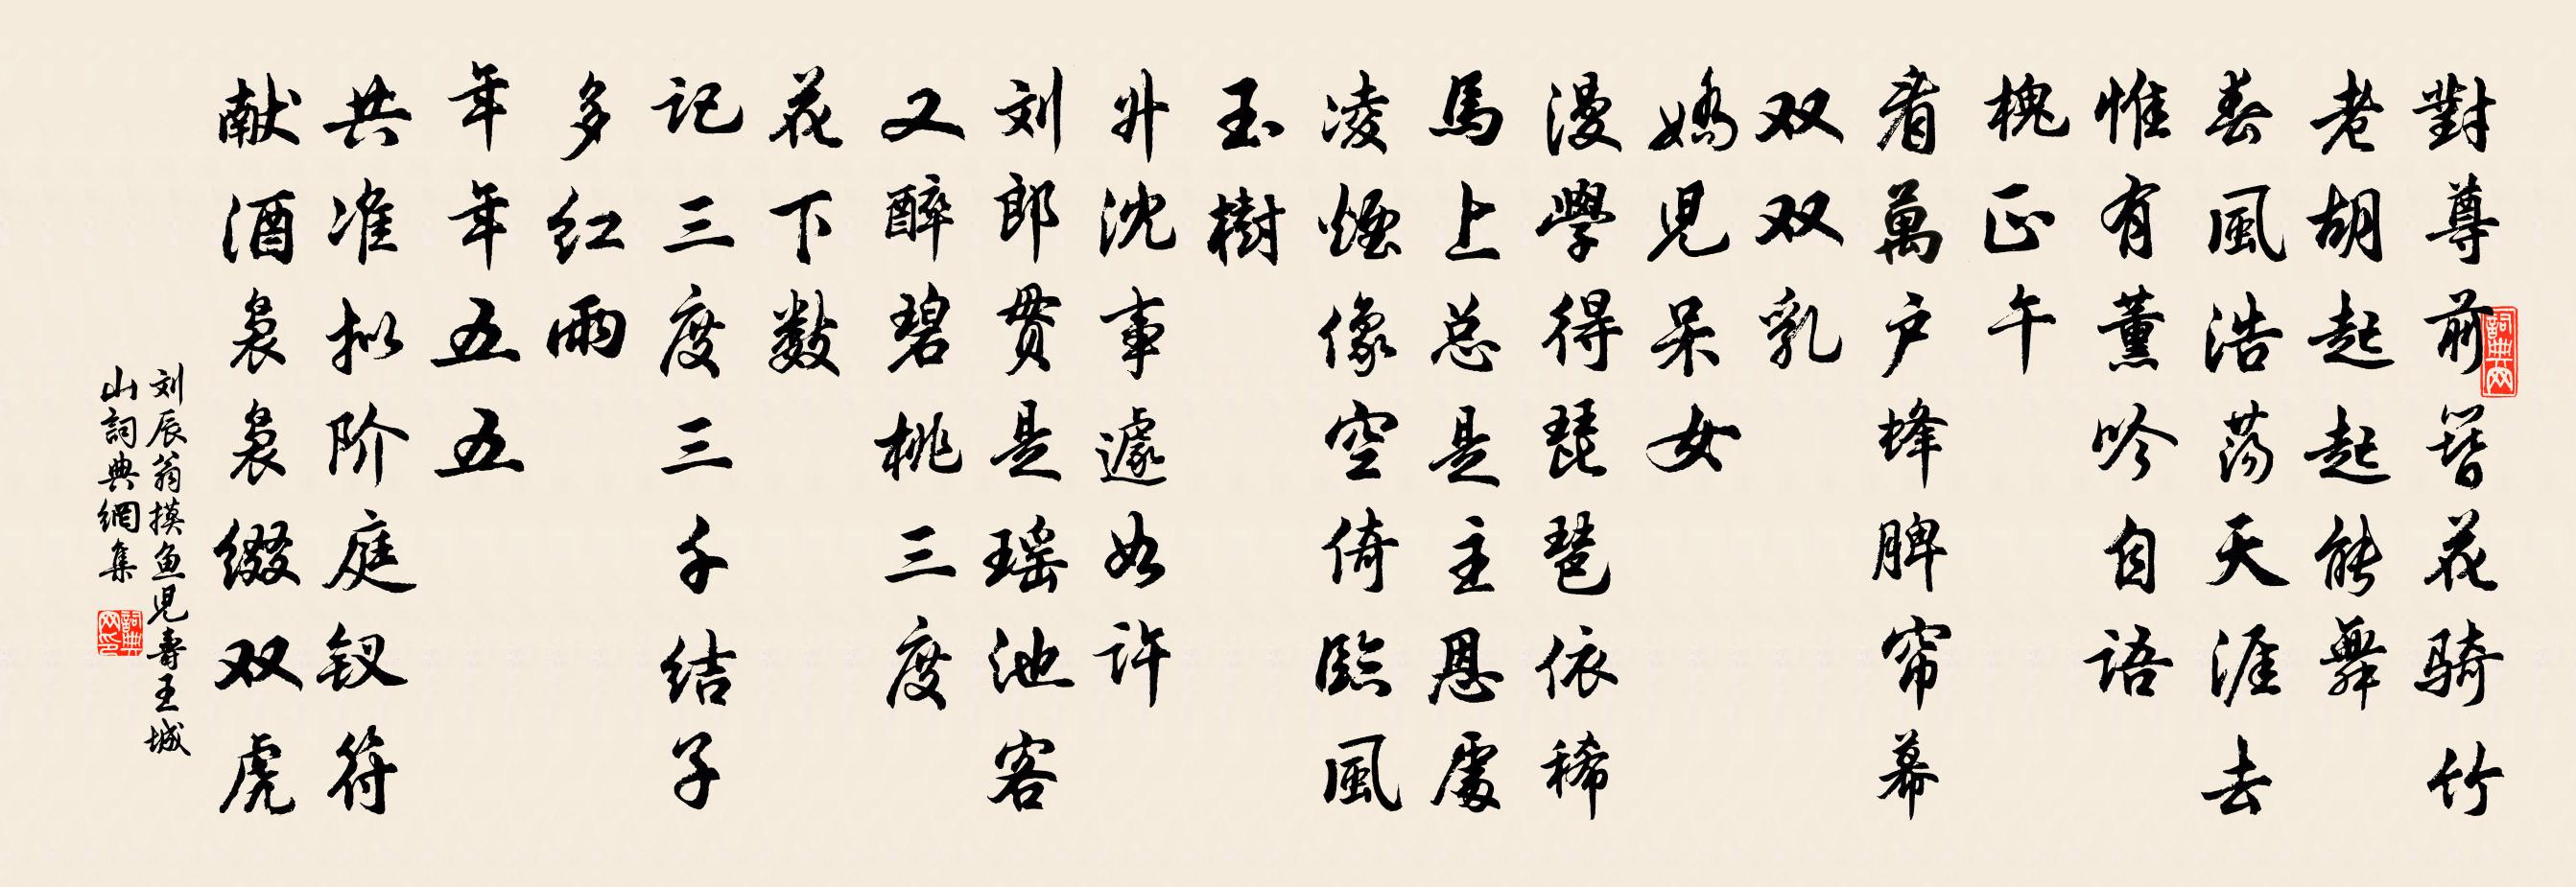 對尊前簪花騎竹
老胡起起能舞
春風浩荡天涯去
惟有薰吟自语
槐正午
看萬户蜂脾帘幕
双双乳
娇児呆女
漫學得琵琶依稀
馬上总是主恩處
凌烟像空倚臨風
玉樹
升沈事遽如许
刘郎贯是瑶池客
又醉碧桃三度
花下数
记三度三千结子
多红雨
年年五五
共准拟阶庭钗符
献酒袅袅缀双虎
刘辰翁摸鱼児壽王城
山詞典網集
詞典网
詞典网印